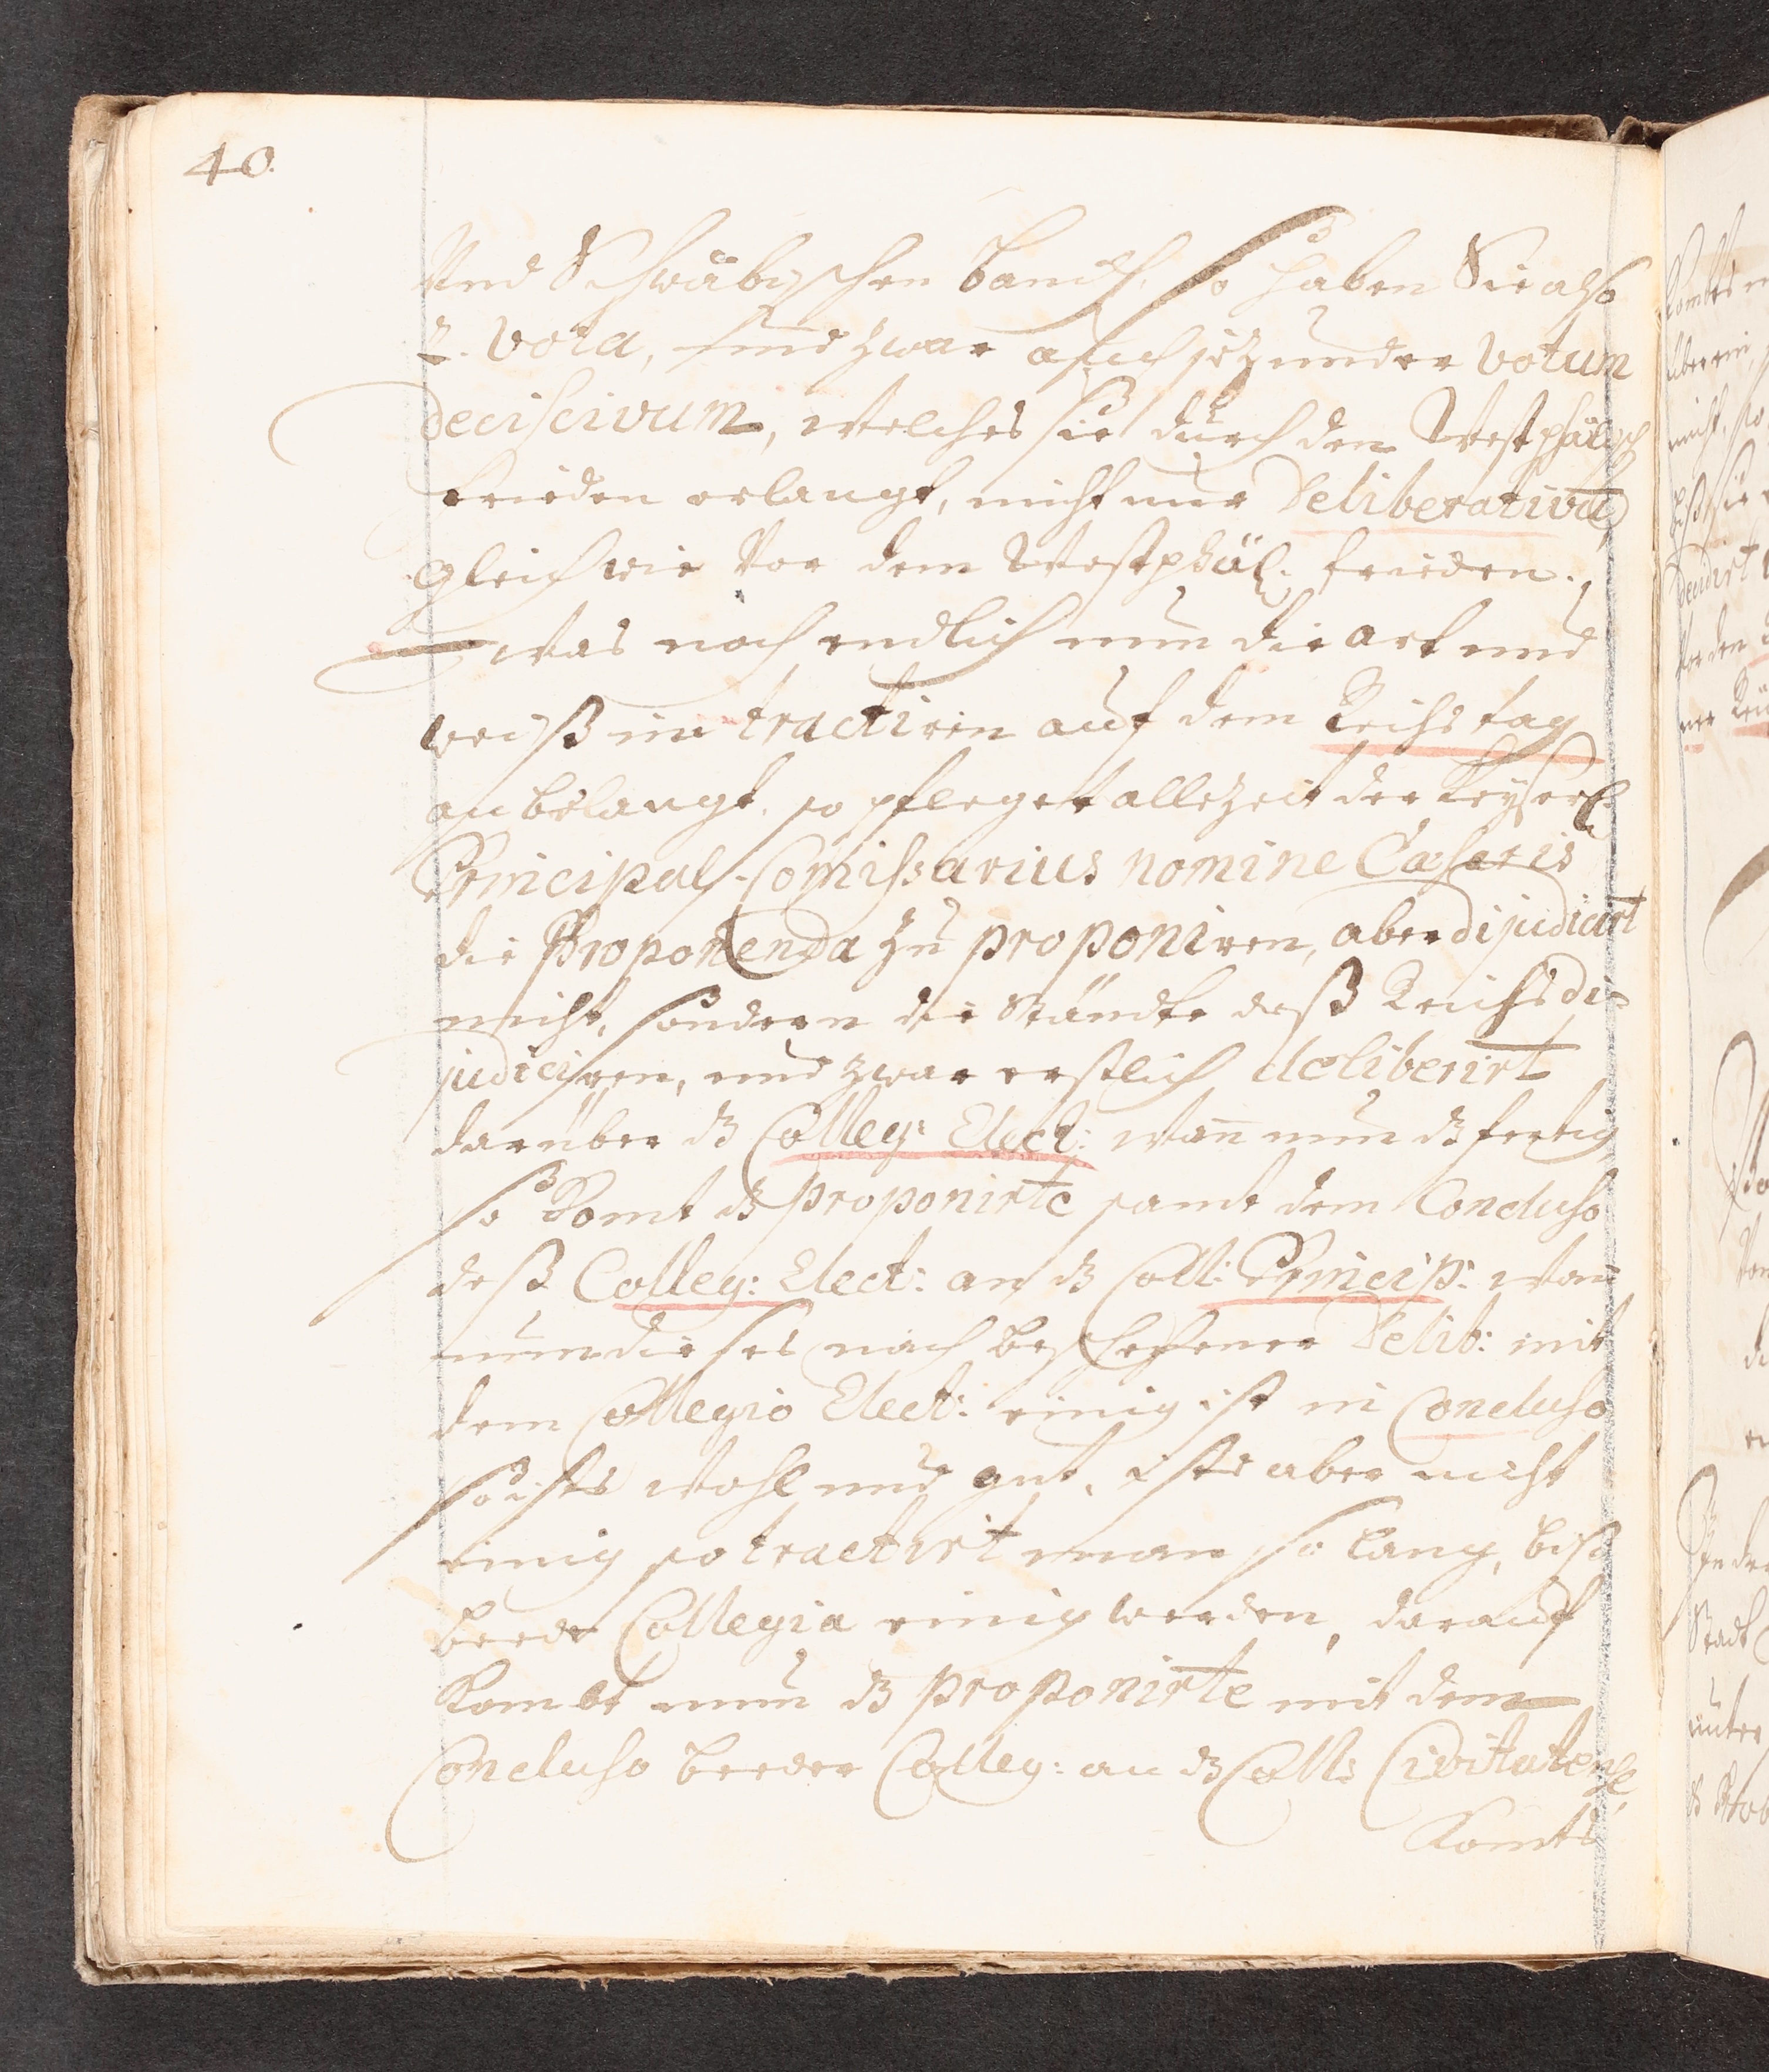 40.
Und Schwäbischen Banck, so haben Sie also
2. Vota, und zwar auch jezunder Votum
Decisivum, welches sie durch den Westphälisch
frieden erlangt, nicht nur Deliberativū,
gleich wie Vor dem Westphäl. frieden.
Was noch endlich nun die art und
weiß im tractiren auf dem Reichs tag
anbelangt, so pfleget allezeit der Keyserl.
Principal-Comissarius nomine Cæsaris
die Proponenda zu proponiren, aber dijudicirt
nicht, sondern die Ständte deß Reichs di-
judiciren, und zwar erstlich deliberirt
darüber dz Colleg: Elect: wan̄ nun dz fertig
so Komt dz proponirte samt dem Concluso
deß Colleg: Elect: an dz Coll: Princip: wan
nun dieses nach beschehener Delib: mit
dem Collegio Elect: einig ist in Concluso
so ists wohl und gut, ists aber nicht
einig so tractirt man so lang, biß
beede Collegia einig werden, darauf
Kombt nun dz proponirte mit dem
Concluso beeder Colleg: an dz Coll: Civitatense,
Komts